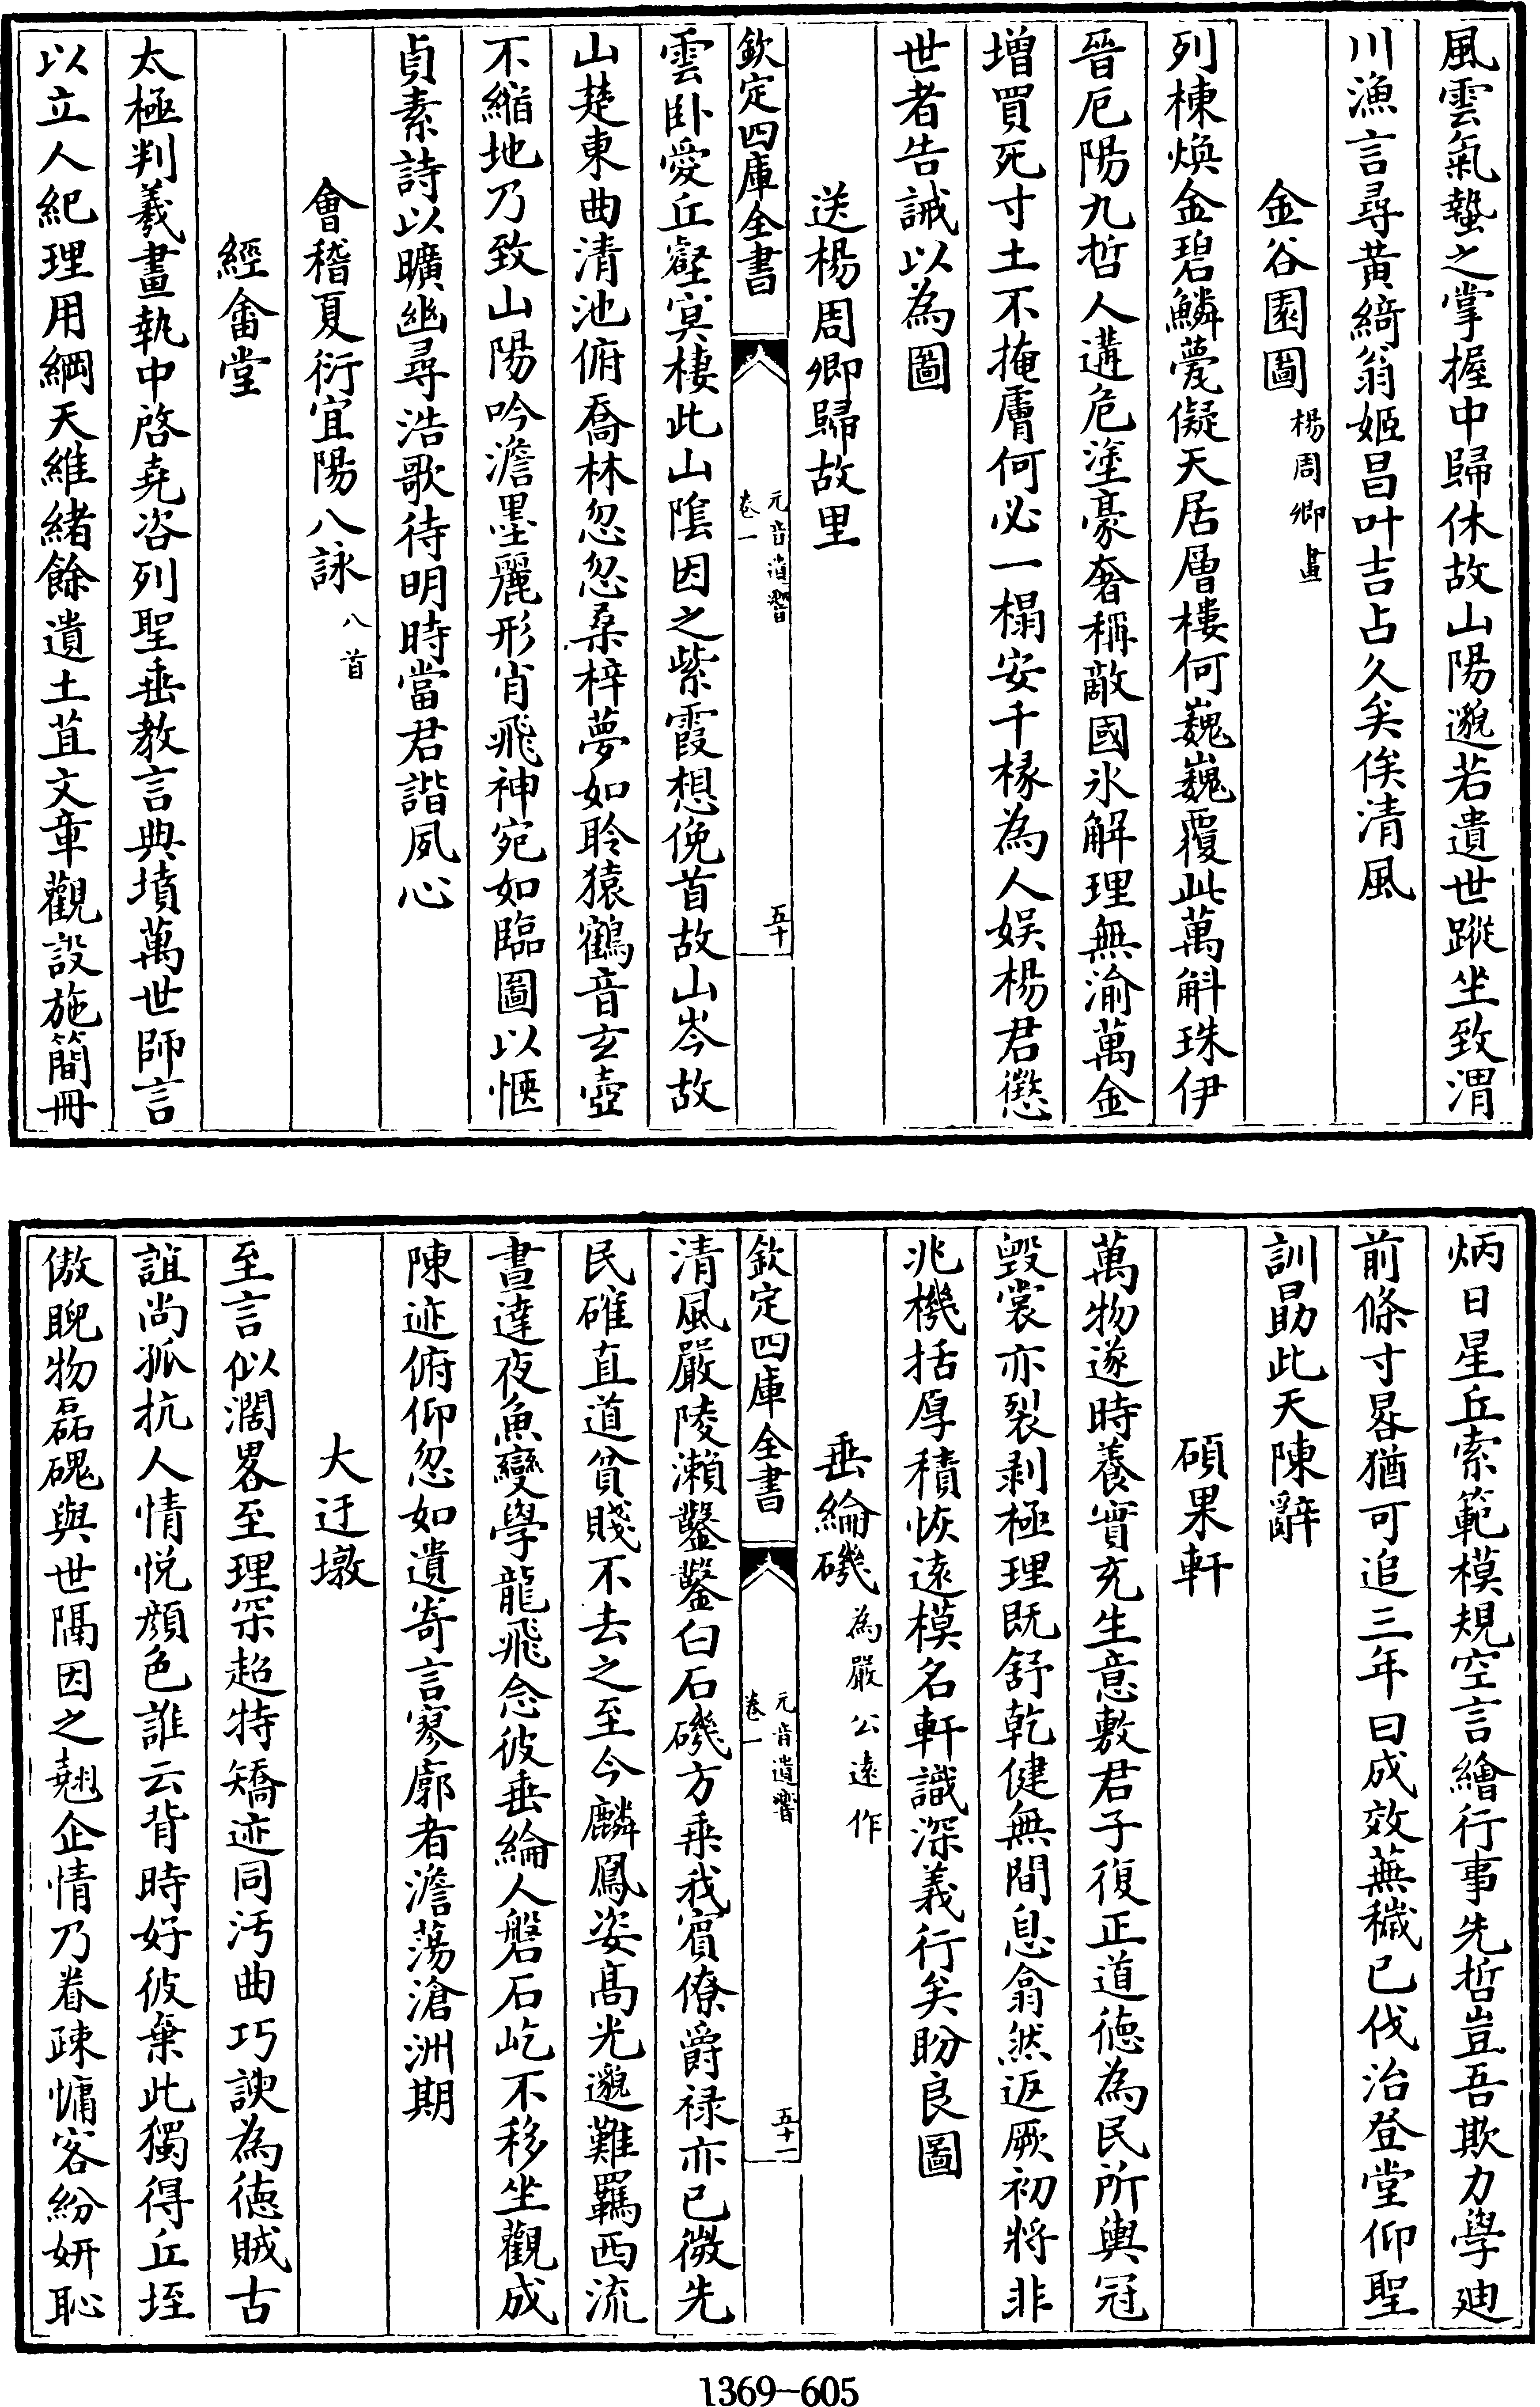 風雲氣蟄之掌握中歸休故山陽邈若遺世蹤坐致渭
川漁言尋黃綺翁姬昌叶吉占久矣俟清風
金谷園圖楊周卿畫
列棟煥金碧鱗甍儗天居層樓何巍巍覆此萬斛珠伊
晉厄陽九哲人遘危塗豪奢稱敵國氷解理無渝萬金
增買死寸土不掩膚何必一榻安千椽為人娱楊君懲
世者告誡以為圖
送楊周卿歸故里
欽定四庫全書
元音遺響
卷一
五十
雲卧愛丘壑寞棲此山隂因之紫霞想俛首故山岑故
山楚東曲清池俯喬林忽忽桑梓夢如聆猿鶴音玄壺
不縮地乃致山陽吟澹墨麗形肖飛神宛如臨圖以愜
貞素詩以曠幽尋浩歌待明時當君諧夙心
會稽夏衍宜陽八詠八首
經畬堂
太極判羲畫執中啓堯咨列聖垂教言典墳萬世師言
以立人紀理用綱天維緒餘遺土苴文章觀設施簡冊
炳日星丘索範模規空言繪行事先哲豈吾欺力學廸
前條寸晷猶可追三年曰成效蕪穢已伐治登堂仰聖
訓勗此天陳辭
碩果軒
萬物遂時養實充生意敷君子復正道德為民所輿冠
毀裳亦裂剥極理既舒乾健無間息翕然返厥初將非
兆機括厚積恢遠模名軒識深義行矣盼良圖
垂綸磯為嚴公遠作
欽定四庫全書
元音遺響
卷一
五十一
清風嚴陵瀨鑿鑿白石磯方乗我賔僚爵禄亦已微先
民確直道貧賤不去之至今麟鳳姿高光邈難羈西流
晝達夜魚變學龍飛念彼垂綸人磐石屹不移坐觀成
陳迹俯仰忽如遺寄言寥廓者澹蕩滄洲期
大迂墩
至言似濶畧至理罙超特矯迹同汚曲巧諛為德賊古
誼尚孤抗人情悦顔色誰云背時好彼棄此獨得丘垤
傲睨物磊磈與世隔因之翹企情乃眷疎慵客紛妍恥
1369-605